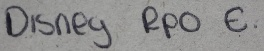 Disney RPO E.